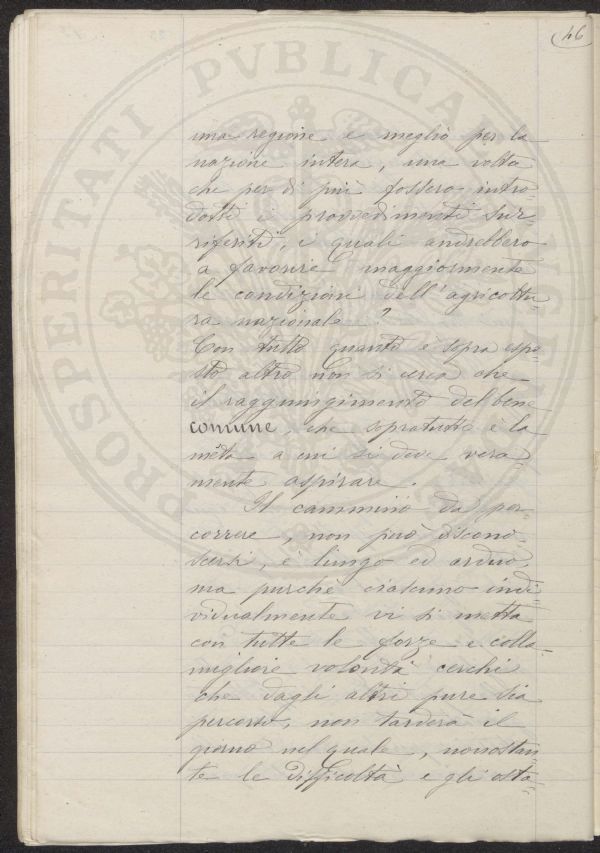 46
una regione e meglio per la
nazione intera, una volta
che per di più fossero intro=
dotti i provvedimenti sur=
riferiti, i quali andrebbero
a favorire maggiormente
le condizioni dell'agricoltu=
ra nazionale?
Con tutto quanto è sopra espo=
sto, altro non si cerca che
il raggiungimento del bene
comune, che sopratutto è la
mèta a cui si deve vera=
mente aspirare.
Il cammino da per=
correre, non può discono=
scersi, è lungo ed arduo,
ma purchè ciascuno indi=
vidualmente vi si metta
con tutte le forze e colla
migliore volontà cerchi
che dagli altri pure sia
percorso, non tarderà il
giorno nel quale, nonostan=
te le difficoltà e gli osta=
PROSPERITATI PVBLICAE